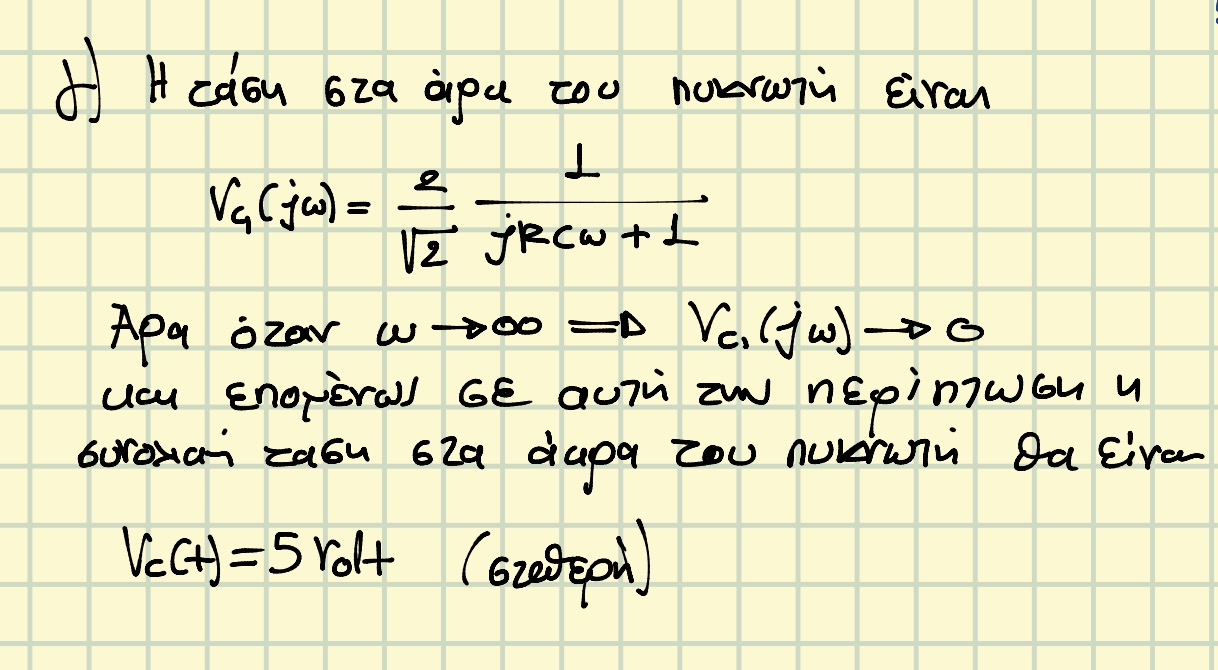 γ) Η τάση στα άκρα του πυκνωτή είναι
V_{C_1}(jω) = \frac{2}{\sqrt{2}} \frac{1}{jRCω + 1}
Άρα όταν ω → ∞ ⇒ V_{C_1}(jω) → 0
και επομένως σε αυτή την περίπτωση η
συνολική ταση στα άκρα του πυκνωτή θα είναι
V_C(t) = 5 Volt (σταθερή)